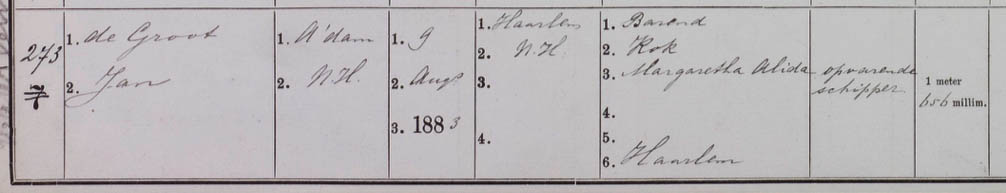 273
7
1. de Groot
2. Jan
1. A'dam
2. N.H.
1. 9
2. Augs
3. 1883
1. Haarlem
2. N.H.
3.
4.
1. Barend
2. Kok
3. Margaretha Alida
4.
5.
6. Haarlem
opvarende
schipper
1 meter
656 millim.